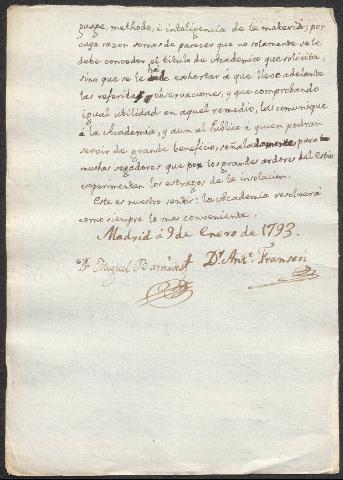 guage, methodo, é inteligencia de la materia; por
cuya razon somos de parecer que no solamente se le
debe conceder el titulo de Académico que solicita,
sino que se le há de exhortar á que lleve adelante
las referidas observaciones, y que comprobando
igual utilidad en aquel remedio, las comunique
á la Academia, y aun al Publico á quien podran
servir de grande beneficio, señaladamente para
muchos segadores que por los grandes ardores del Estio
experimentan los estragos de la insolacion.
Este es nuestro sentir: la Academia resolverá
como siempre lo mas conveniente.
Madrid á 9 de Enero de 1793.
Dr. Miguel Barnades Dr. Antº. Franseri